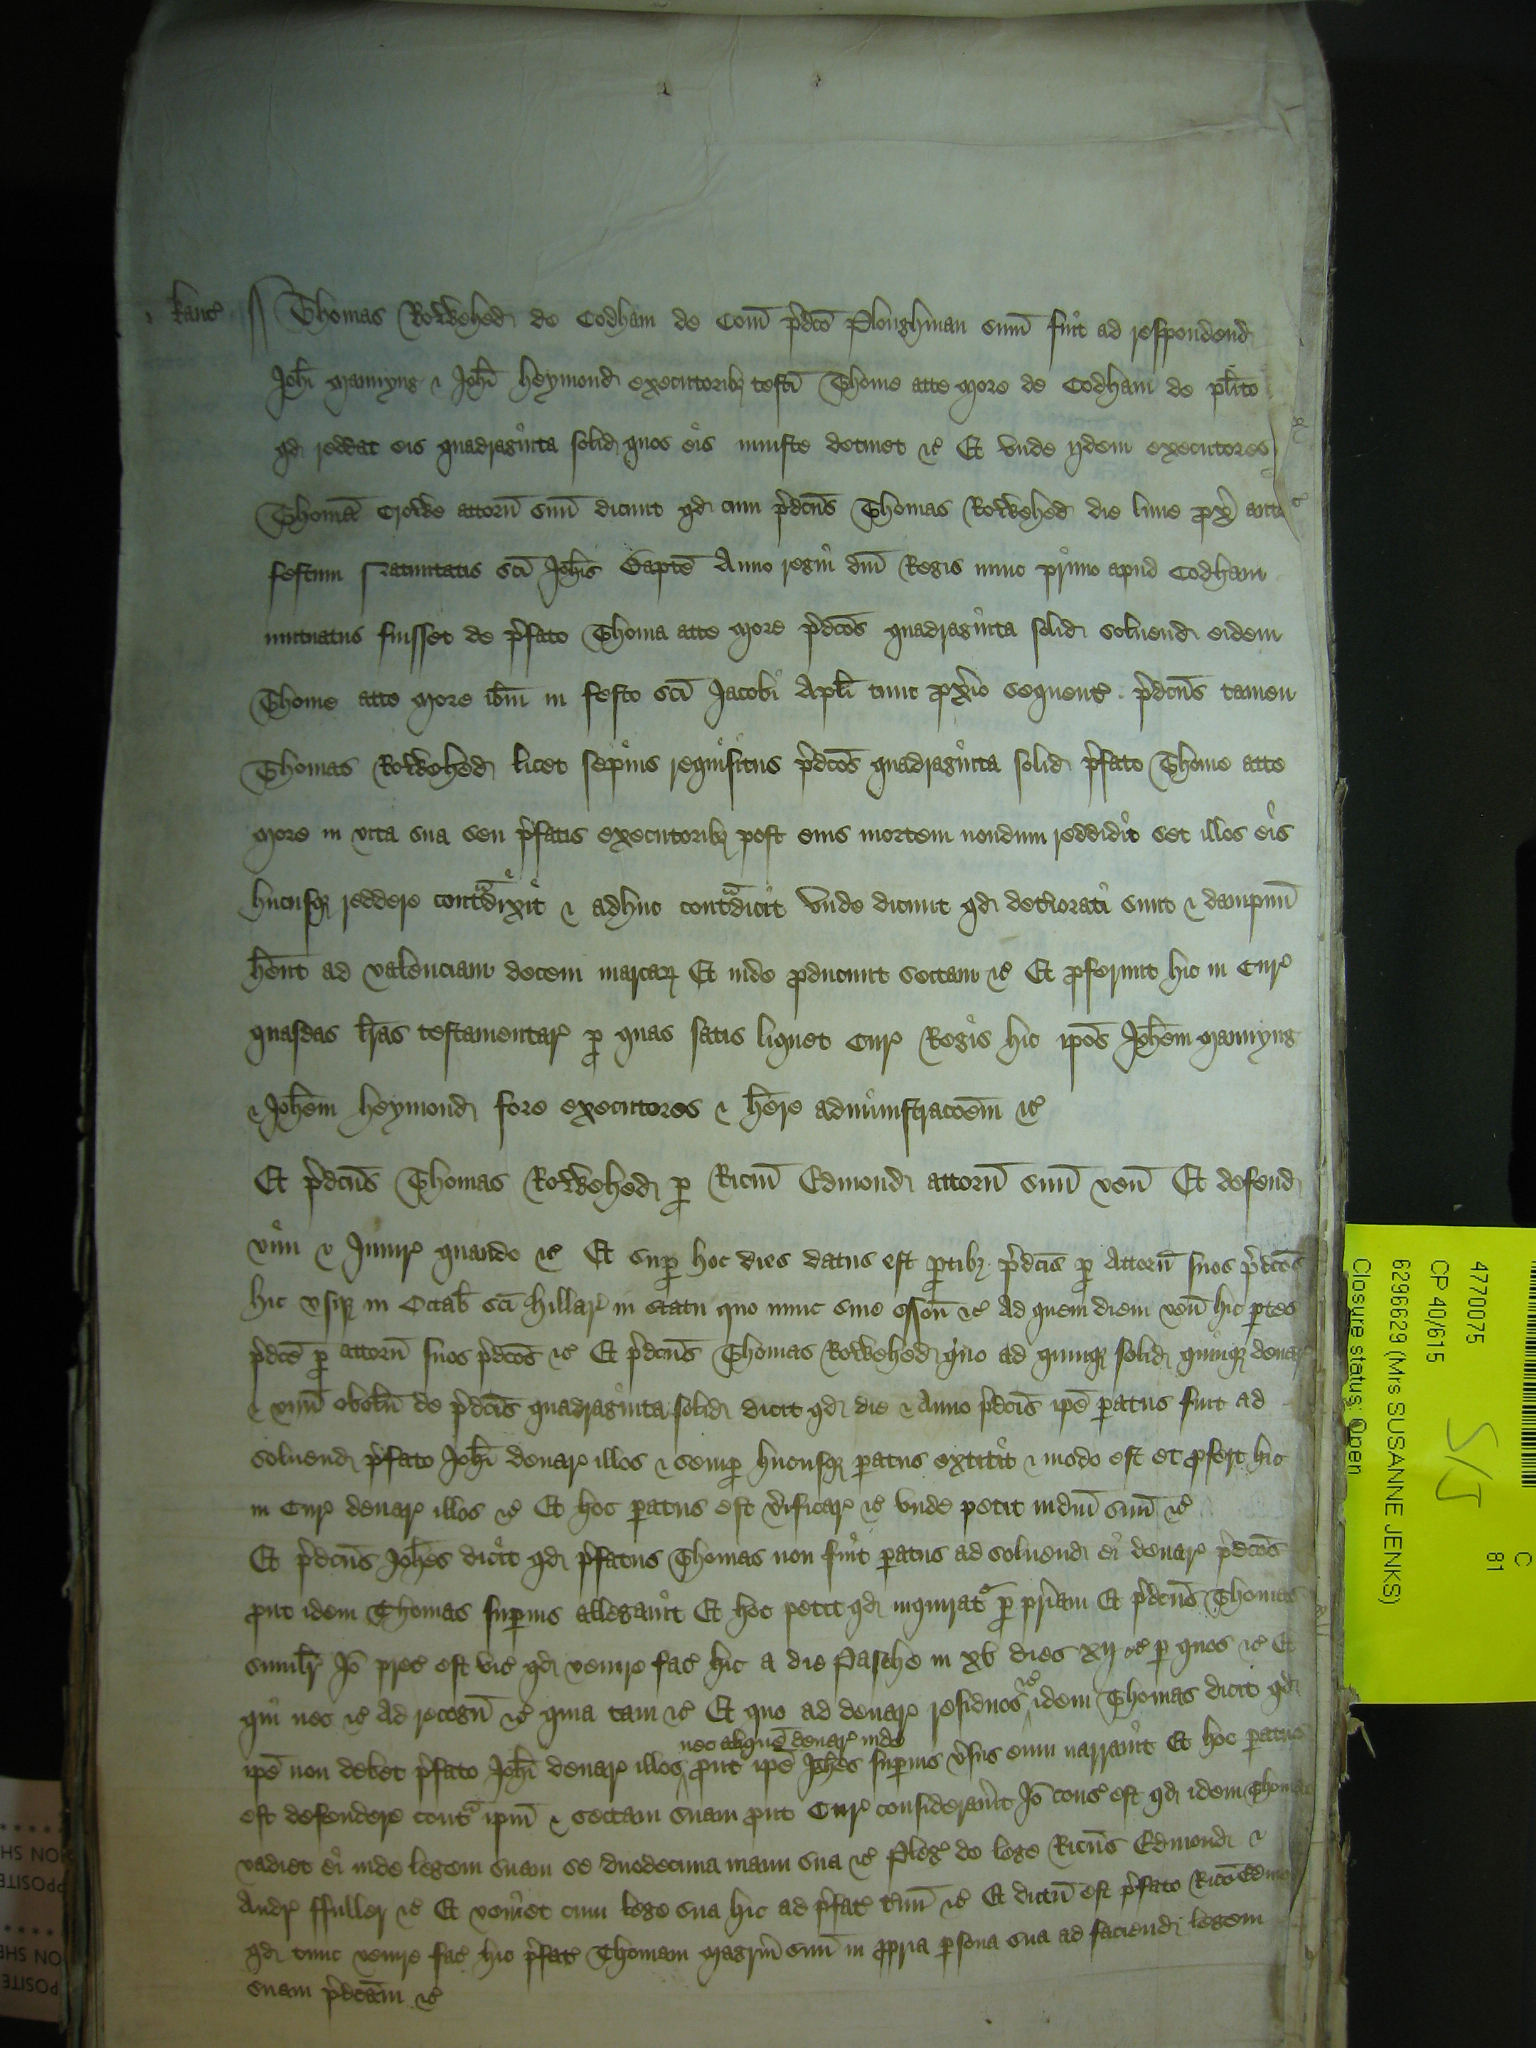 kanc̄ Thomas Rowehed de Codham de Com̄ p̄dc̄o Ploughman sum̄ fuit ad respondend
Joh̄i Mannyng & Joh̄i Heymond executorib3 testī Thome atte More de Codham de pl̄ito
qd reddat eis quadraginta solid quos eis iniuste detinet &c̄ Et unde ijdem executores
Thomā Crowe attorn̄ suū dicunt qd cum p̄dcūs Thomas Rowehed die lune px̄ ante
festum Natiuitatis sc̄i Joh̄is Bapt̄e Anno regni dn̄i Regis nunc primo apud Codham
mutuatus fuisset de p̄fato Thoma atte More p̄dcōs quadraginta solid soluend eidem
Thome atte More ib̄m in festo sc̄i Jacobi Apl̄i tunc px̄io sequent̄ p̄dcūs tamen
Thomas Rowehed licet sepius requisitus p̄dcōs quadraginta solid p̄fato Thome atte
More in vita sua seu p̄fatis executorib3 post eius mortem nondum reddidit set illos eis
hucusq3 reddere cont̄dixit & adhuc cont̄dicit Unde dicunt qd det̄iorati sunt & dampnū
h̄ent ad valenciam decem marcar̄ Et inde pducunt sectam &c̄ Et pferunt hic in Cur̄
quasdas l̄ras testamentar̄ p quas satis liquet Cur̄ Regis hic ip̄os Joh̄em Mannyng
& Joh̄em Heymond fore executores & h̄ere administracōem &c̄
Et p̄dcūs Thomas Rowehed p Ricm̄ Edmond attorn̄ suū ven̄ Et defend
vim & Iniur̄ quando &c̄ Et sup hoc dies datus est ptib3 p̄dcīs p Attorn̄ suos p̄dcōs
hic usq3 in Octab̄ sc̄i Hillar̄ in statu quo nunc sine esson̄ &c̄ Ad quem diem ven̄ hic ptes
p̄dcē p attorn̄ suos p̄dcōs &c̄ Et p̄dcūs Thomas Rowehed quo ad quinq3 solid quinq3 denar̄
& unū obolū de p̄dcīs quadraginta solid dicit qd die & Anno p̄dcīs ip̄e paratus fuit ad
soluend p̄fato Joh̄i denar̄ illos & semp hucusq3 paratus extitit & modo est et pfert hic
in Cur̄ denar̄ illos &c̄ Et hoc paratus est v̄ificar̄ &c̄ unde petit iudm̄ suū &c̄
Et p̄dcūs Joh̄es dicit qd p̄fatus Thomas non fuit paratus ad soluend ei denar̄ p̄dcōs
put idem Thomas supius allegauit Et hoc petit qd inquirat̄ p pr̄iam Et p̄dcūs Thomas
simil̄r Jō prec̄ est vic̄ qd venire fac̄ hic a die Pasche in xv dies xij &c̄ p quos &c̄ Et
qui nec &c̄ Ad recogn̄ &c̄ quia tam &c̄ Et quo ad denar̄ residuos idem Thomas dicit qd
nec aliquē denar̄ inde
ip̄e non debet p̄fato Joh̄i denar̄ illos put ip̄e Joh̄es supius v̄sus eum narrauit Et hoc paratus
est defendere cont̄ ip̄m & sectam suam put Cur̄ considerauit Jō cons̄ est qd idem Thomas
vadiet ei inde legem suam se duodecima manu sua &c̄ Pleḡ de lege Ricūs Edmond &
Andr̄ ffuller &c̄ Et veniet cum lege sua hic ad p̄fat̄ t̄m̄ &c̄ Et dictū est p̄fato Ricō Edmo
qd tunc venire fac̄ hic p̄fat̄ Thomam magrm̄ suū in ppria psona sua ad faciend legem
suam p̄dcām &c̄
4770075
C 81
CP 40/615
S/J
6296629 (Mrs SUSANNE JENKS)
Closure status: Open